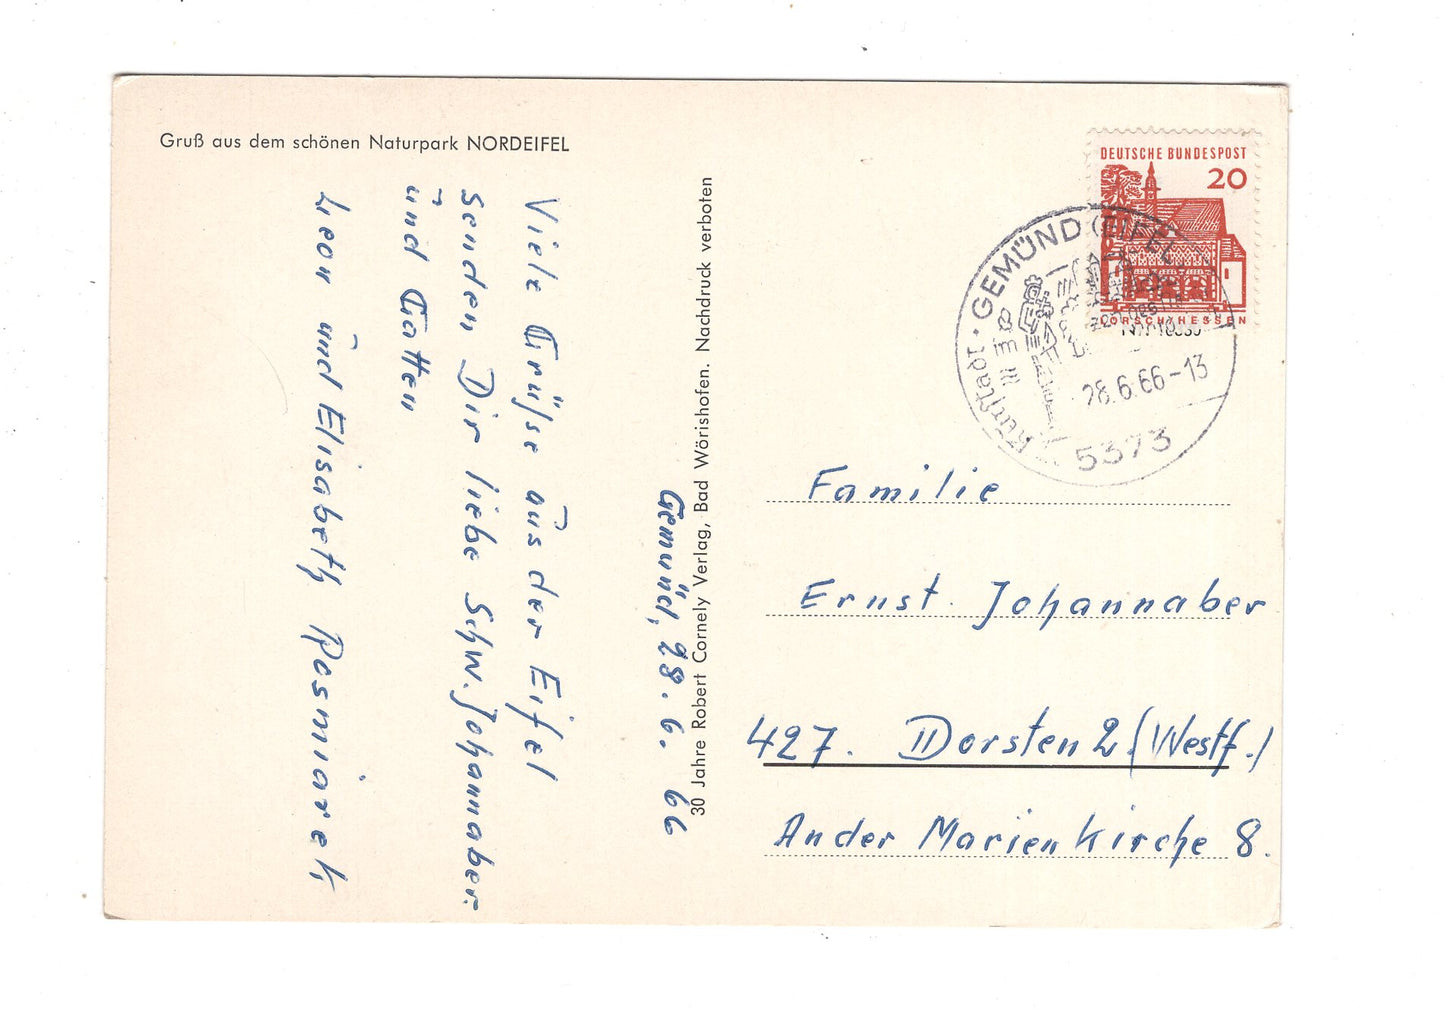 Gruß aus dem schönen Naturpark NORDEIFEL
Gemünd, 28. 6. 66
Viele Grüße aus der Eifel
senden Dir liebe Schw. Johannaber.
und Gatten
Leon und Elisabeth Posmiarek
30 Jahre Robert Cornely Verlag, Bad Wörishofen. Nachdruck verboten
DEUTSCHE BUNDESPOST
20
LORSCH/HESSEN
Kurstadt · GEMÜND (EIFEL)
28.6.66-13
5373
Familie
Ernst Johannaber
427. Dorsten 2 (Westf.)
An der Marienkirche 8.